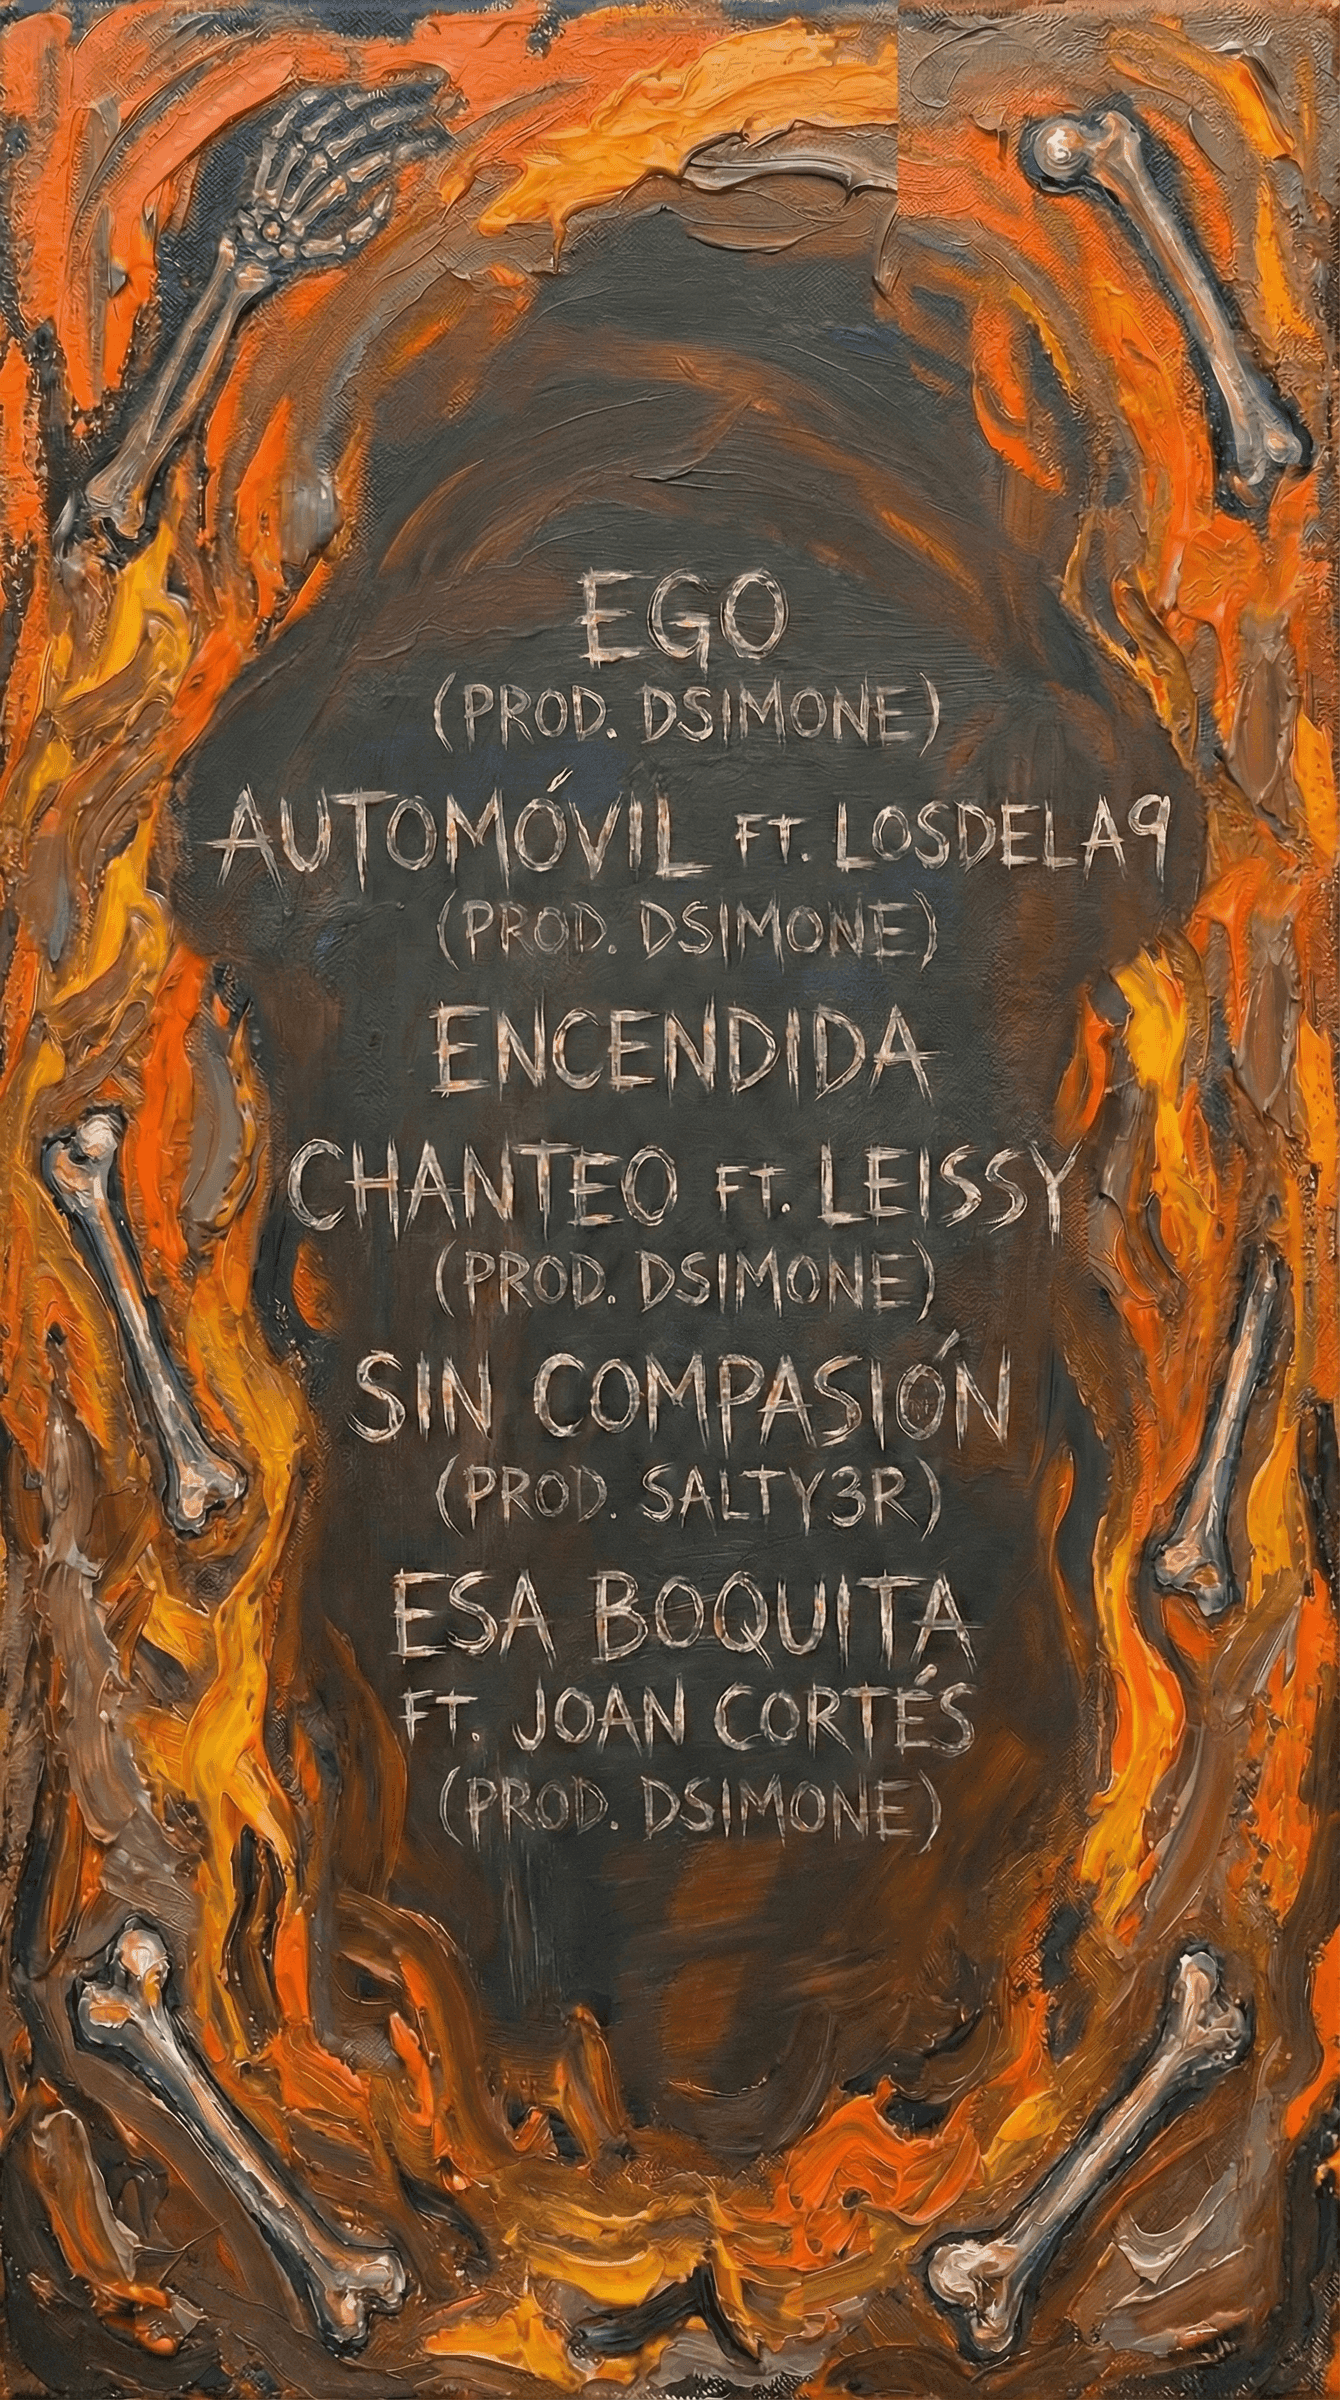 EGO
(PROD. DSIMONE)
AUTOMÓVIL FT. LOSDELA9
(PROD. DSIMONE)
ENCENDIDA
CHANTEO FT. LEISSY
(PROD. DSIMONE)
SIN COMPASIÓN
(PROD. SALTY3R)
ESA BOQUITA
FT. JOAN CORTÉS
(PROD. DSIMONE)